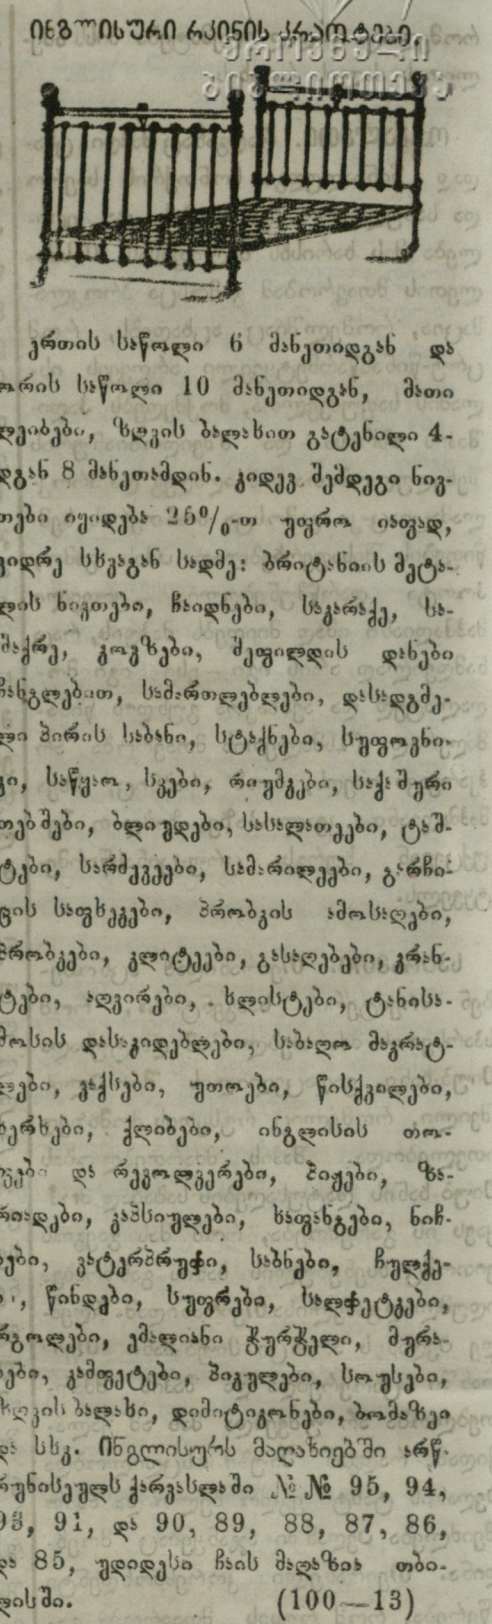 ინგლისური რკინის კრაოტები.
ეროვნული
ბიბლიოთეკა
ერთის საწოლი 6 მანეთიდგან და
ორის საწოლი 10 მანეთიდგან, მათი
ლეიბები, ზღვის ბალახით გატენილი 4-
დგან 8 მანეთამდინ. კიდევ შემდეგი ნივ-
თები იყიდება 25%-თ უფრო იაფად,
ვიდრე სხვაგან სადმე: ბრიტანიის მეტა-
ლის ნივთები, ჩაიდნები, საკარაქე, სა-
შაქრე, კოვზები, შეფილდის დანები
ჩანგლებით, სამართლებლები, დასადგმე-
ლი პირის საბანი, სტაქნები, სუფოვნი-
კი, საწყაო, სკები, რიუმკები, საქაშური
თებშები, ბლიუდები, სასალათეები, ტაშ-
ტები, სარძევეები, სამარილეები, გარჩი-
ცის საფხეკები, პრობკის ამოსაღები,
პრობკები, კლიტეები, გასაღებები, კრან-
ტები, აღვირები, ხლისტები, ტანისა-
მოსის დასაკიდებლები, საბაღო მაკრატ-
ლები, ვაქსები, უთოები, წისქვილები,
ხერხები, ქლიბები, ინგლისის თო-
ფები და რევოლვერები, პიჟები, ზა-
რიადები, კაპსიულები, საფანგები, ნიჩ-
ბები, ვატერპრუჭი, საბნები, ჩულქე-
წინდები, სუფრები, სალჶეტკები,
რგოლები, ემალიანი ჭურჭელი, მურა-
ბები, კამფეტები, პიკულები, სოუსები,
ზღვის ბალახი, დიმიტიკონები, ბომაზეი
და სხვ. ინგლისურს მაღაზიებში არწ-
რუნისეულს ქარვასლაში № № 95, 94,
93, 91, და 90, 89, 88, 87, 86,
და 85, უდიდესი ჩაის მაღაზია თბი-
ლისში. (100—13)